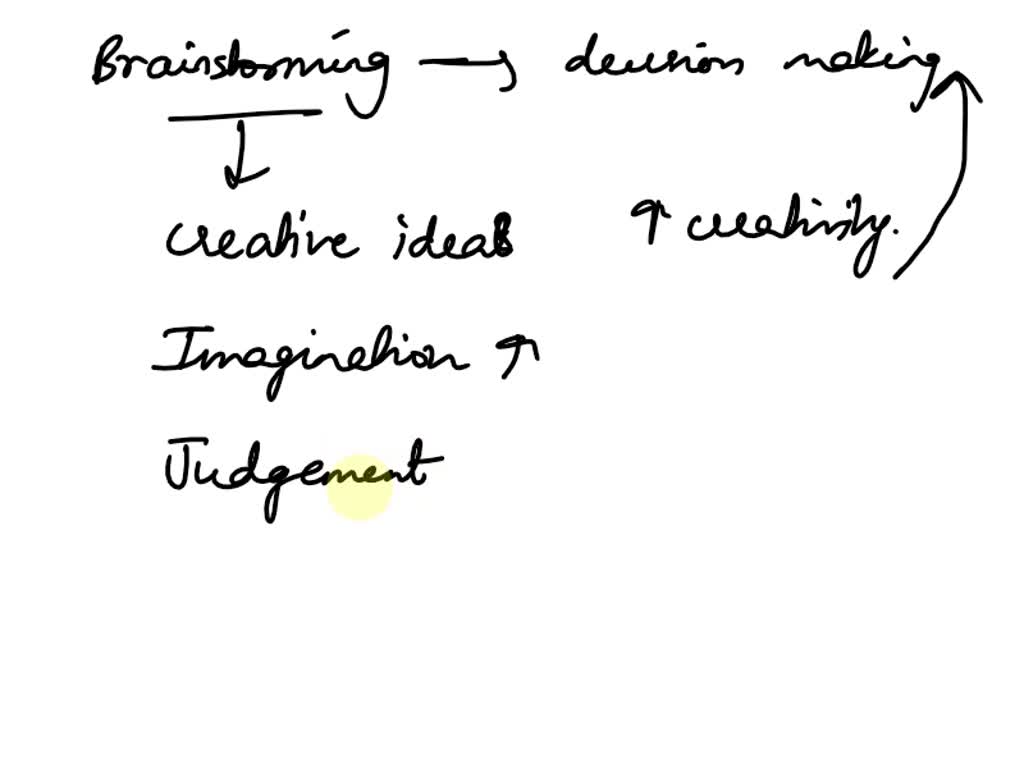 Brainstorming → decision making
↓
creative ideas ↑ creativity.
Imagination ↑
Judgement